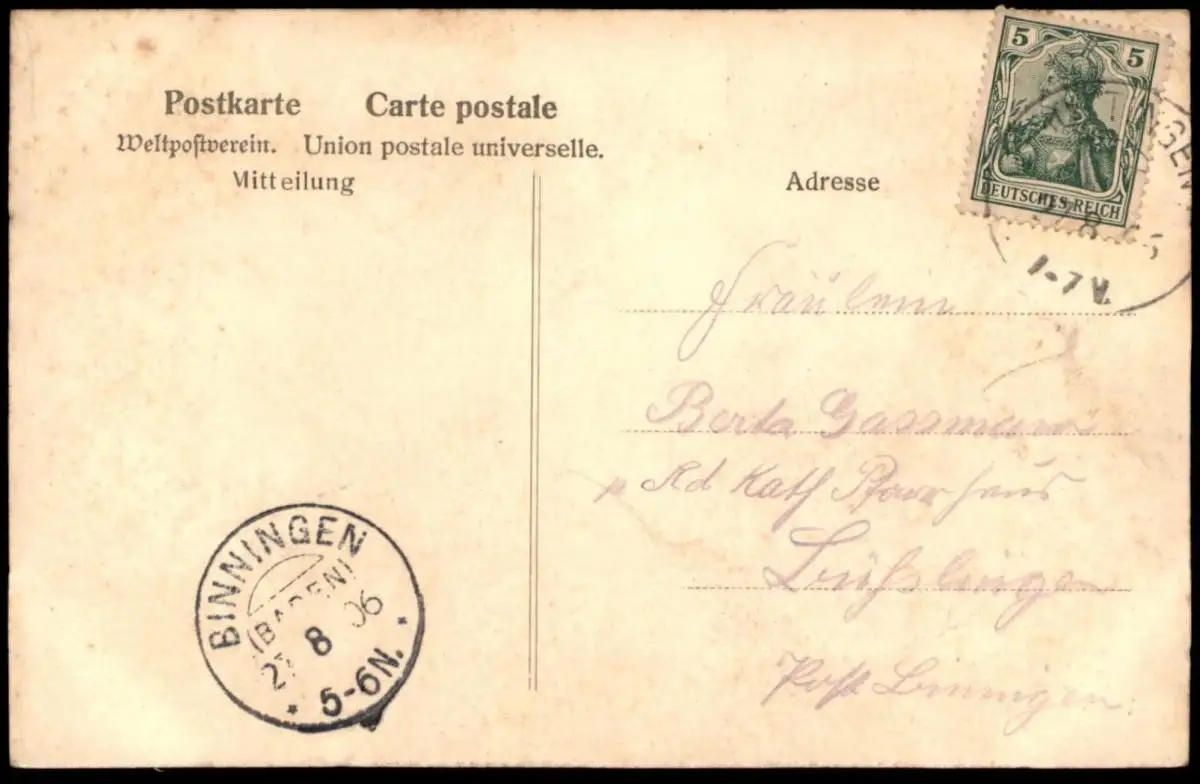 Postkarte Carte postale
Weltpostverein. Union postale universelle.
Mitteilung
Adresse
5 5
DEUTSCHES REICH
NGEN
8
7-7 V.
Fräulein
Berta Gassmann
Kath Pfarrhaus
Post Binningen
BINNINGEN
(BADEN)
8 06
5-6N.